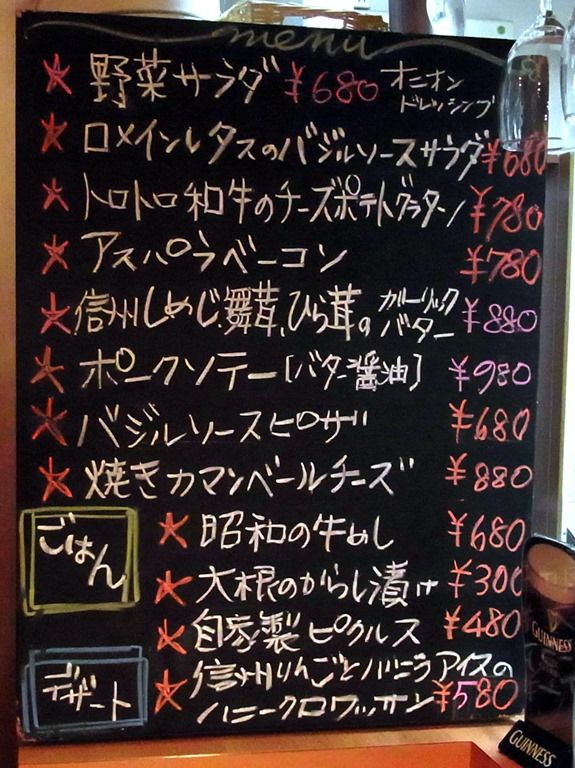 menu
★ 野菜サラダ ¥680 オニオン
ドレッシング
★ ロメインレタスのバジルソースサラダ ¥680
★ トロトロ和牛のチーズポテトグラタン ¥780
★ アスパラベーコン ¥780
★ 信州しめじ、舞茸、ひら茸の ガーリック
バター ¥880
★ ポークソテー[バター醤油] ¥980
★ バジルソースピザ ¥680
★ 焼きカマンベールチーズ ¥880
ごはん
★ 昭和の牛めし ¥680
★ 大根のからし漬け ¥300
★ 自家製ピクルス ¥480
デザート
★ 信州りんごとバニラアイスの
ハニークロワッサン ¥580
GUINNESS
GUINNESS